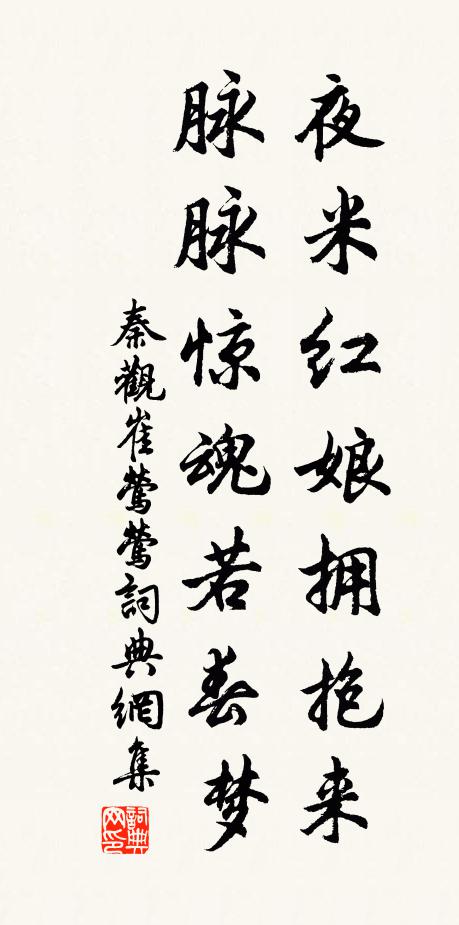 夜米红娘拥抱来
脉脉惊魂若春梦
秦觀崔鶯鶯詞典網集
詞典网印